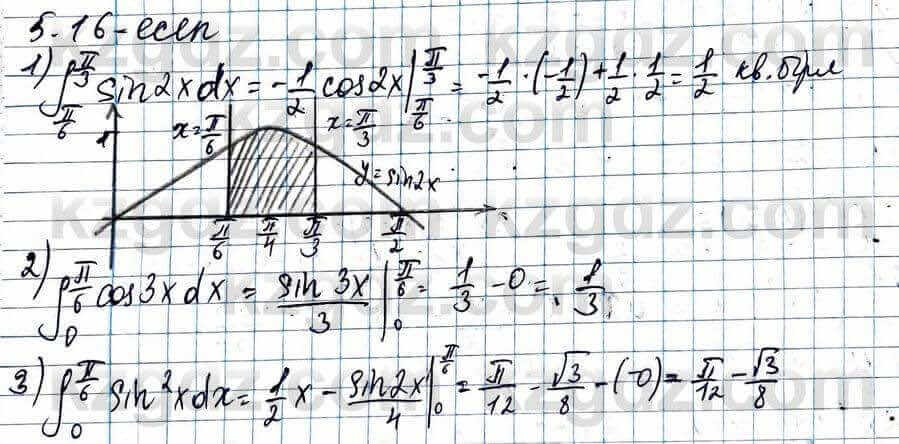 5.16-есеп
1) ∫_{π/6}^{π/3} sin2xdx = -1/2 cos2x |_{π/6}^{π/3} = -1/2 · (-1/2) + 1/2 · 1/2 = 1/2 кв.бірл
1 x=π/6 x=π/3
y=sin2x
π/6 π/4 π/3 π/2
2) ∫_0^{π/6} cos3xdx = sin3x/3 |_0^{π/6} = 1/3 - 0 = 1/3
3) ∫_0^{π/6} sin²xdx = 1/2 x - sin2x/4 |_0^{π/6} = π/12 - √3/8 - (-0) = π/12 - √3/8
kzgdz.com